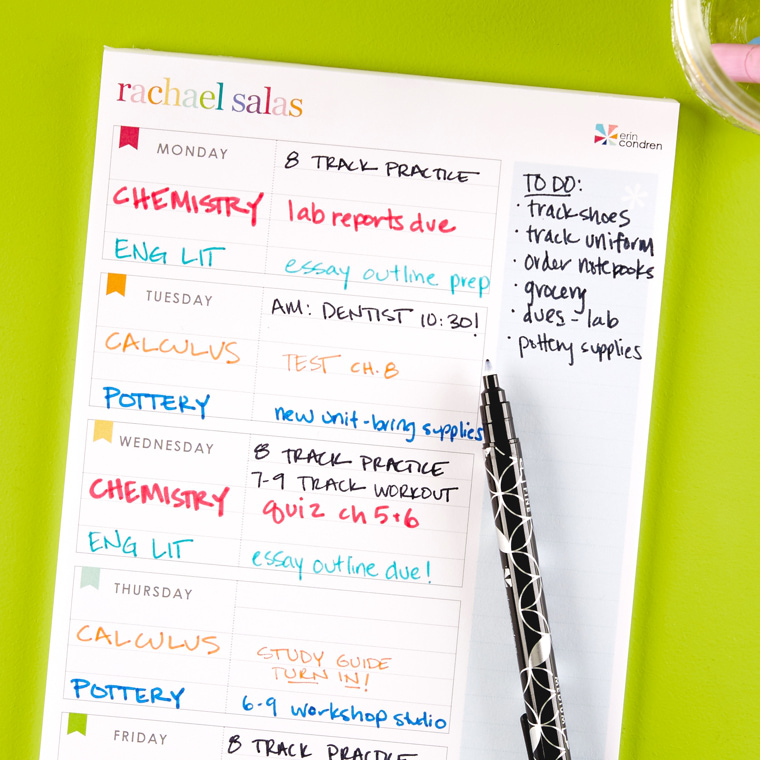 rachael salas
erin
condren
MONDAY
8 TRACK PRACTICE
CHEMISTRY
lab reports due
ENG LIT
essay outline prep
TUESDAY
AM: DENTIST 10:30!
CALCULUS
TEST CH. 8
POTTERY
new unit-bring supplies
WEDNESDAY
8 TRACK PRACTICE
7-9 TRACK WORKOUT
CHEMISTRY
quiz ch 5+6
ENG LIT
essay outline due!
THURSDAY
CALCULUS
STUDY GUIDE
TURN IN!
POTTERY
6-9 workshop studio
FRIDAY
8 TRACK PRACTICE
TO DO:
· track shoes
· track uniform
· order notebooks
· grocery
· dues - lab
· pottery supplies